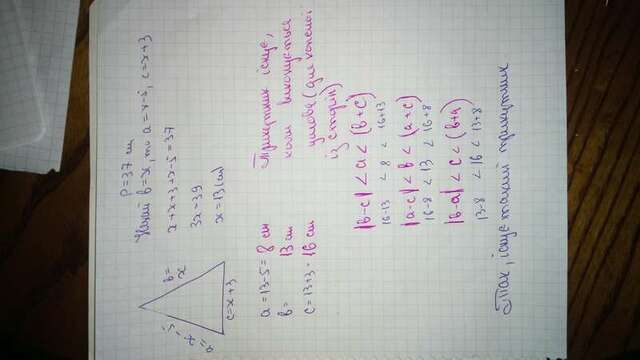 P=37 см
Нехай b=x, то a=x-5, c=x+3
x+x+3+x-5=37
3x=39
x=13 (см)
b=
x
a=
x-5
c=x+3
a=13-5=8 см
b= 13 см
c=13+3=16 см
Трикутник існує,
коли виконується
умова (для кожної
із сторін)
|b-c| < a < (b+c)
16-13 < 8 < 16+13
|a-c| < b < (a+c)
16-8 < 13 < 16+8
|b-a| < c < (b+a)
13-8 < 16 < 13+8
Так, існує такий трикутник